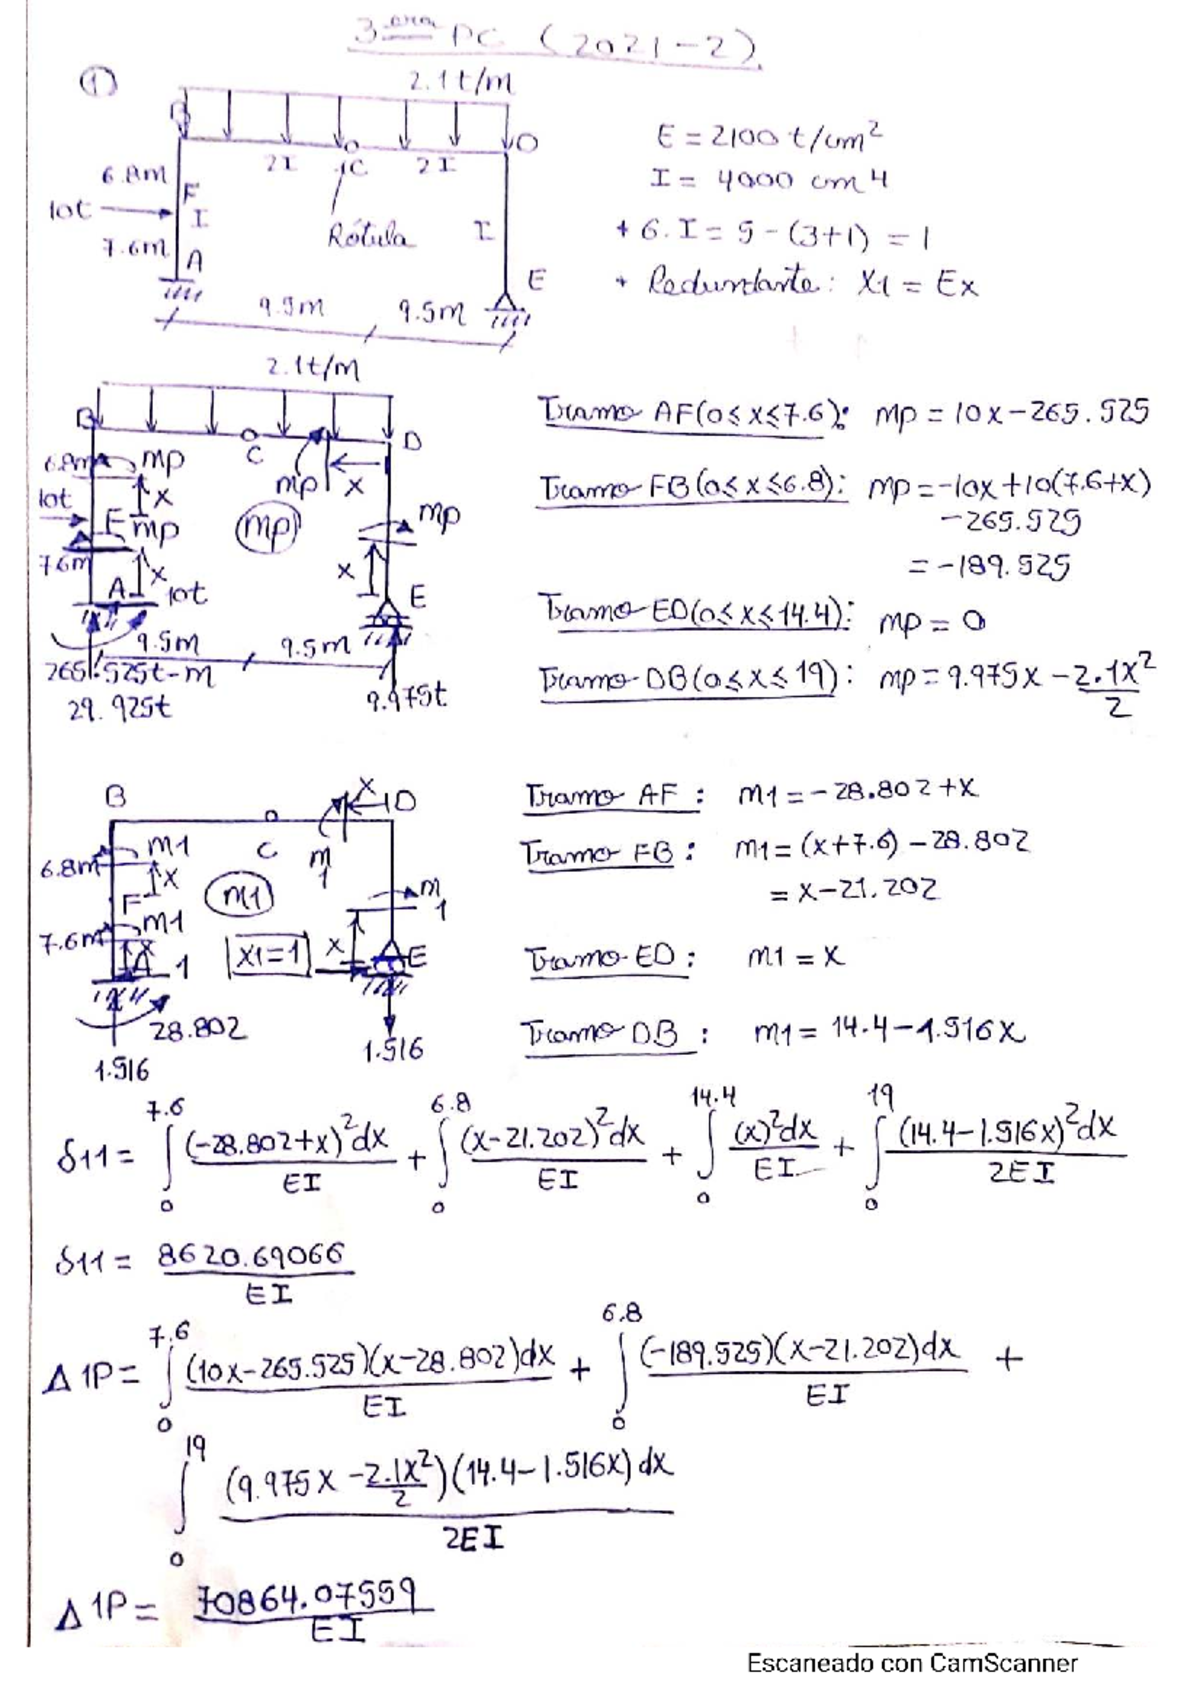 3era PC (2021-2)
①
2.1t/m
B
D
2I
C
2I
6.8m
F
10t
I
I
Rótula
7.6m
A
E
9.5m
9.5m
E = 2100 t/cm²
I = 4000 cm4
+ G.I = 5 - (3+1) = 1
+ Redundante: X1 = Ex
2.1t/m
B
D
C
6.8m
mp
mp
x
x
mp
10t
F
mp
mp
7.6m
x
x
A
10t
E
9.5m
9.5m
265.525t-m
29.925t
9.975t
Tramo AF(0≤x≤7.6): mp = 10x-265.525
Tramo FB(0≤x≤6.8): mp=-10x+10(7.6+x)
-265.525
= -189.525
Tramo ED(0≤x≤14.4): mp = 0
Tramo DB(0≤x≤19): mp = 9.975x - 2.1x²/2
B
x
D
C
m1
m1
6.8m
x
m1
m1
F
m1
7.6m
x
A
1
X1=1
x
E
28.802
1.516
1.516
Tramo AF: m1=-28.802+x
Tramo FB: m1=(x+7.6)-28.802
= x-21.202
Tramo ED: m1 = x
Tramo DB: m1= 14.4-1.516x
δ11 = ∫₀^7.6 (-28.802+x)²dx/EI + ∫₀^6.8 (x-21.202)²dx/EI + ∫₀^14.4 (x)²dx/EI + ∫₀^19 (14.4-1.516x)²dx/2EI
δ11 = 8620.69066/EI
Δ1P = ∫₀^7.6 (10x-265.525)(x-28.802)dx/EI + ∫₀^6.8 (-189.525)(x-21.202)dx/EI +
∫₀^19 (9.975x - 2.1x²/2)(14.4-1.516x)dx/2EI
Δ1P = 70864.07559/EI
Escaneado con CamScanner